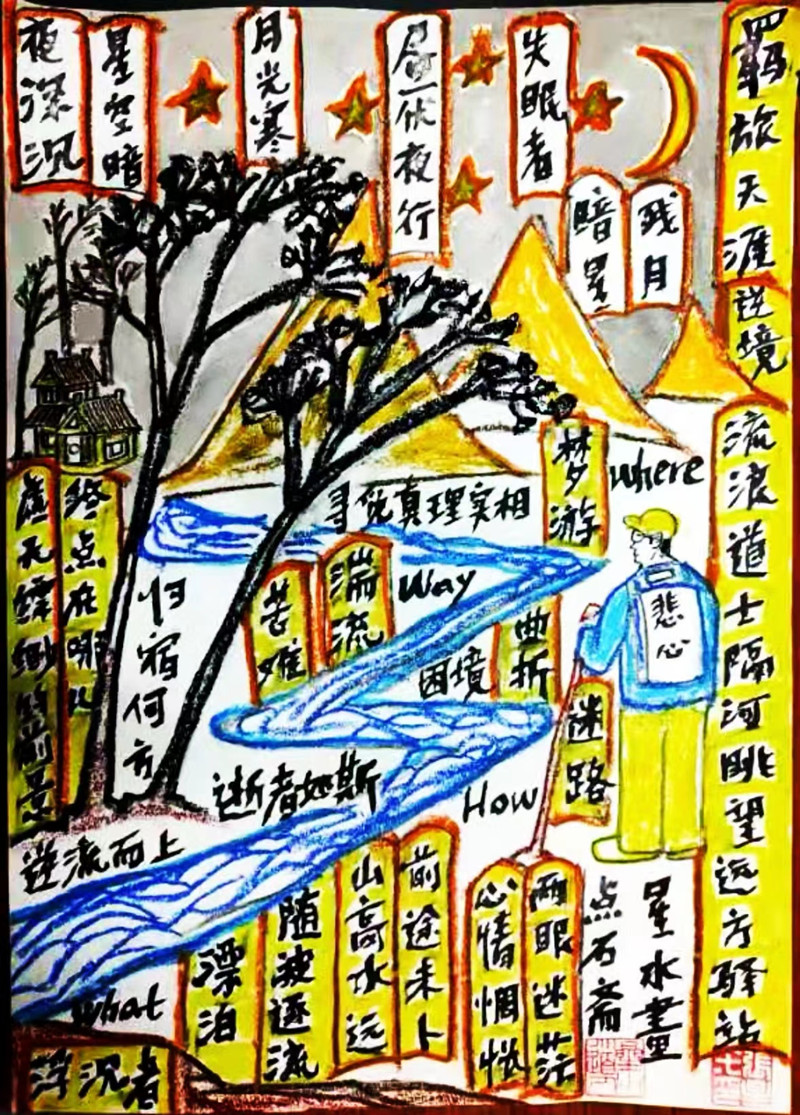 夜深沉
星空暗
月光寒
昼伏夜行
失眠者
暗星
残月
羁旅天涯
逆境
流浪道士隔河眺望远方驿站
梦游
where
寻觅真理实相
苦难
湍流
Way
曲折
困境
悲心
迷路
虚无缥缈的前景
终点在哪儿
归宿何方
逝者如斯
How
逆流而上
what
浮沉者
漂泊
随波逐流
山高水远
前途未卜
心情惆怅
两眼迷茫
点石斋
星水画